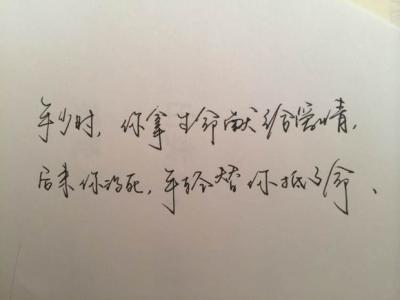 年少时，你拿生命献给爱情，
后来你没死，年轻替你抵了命、